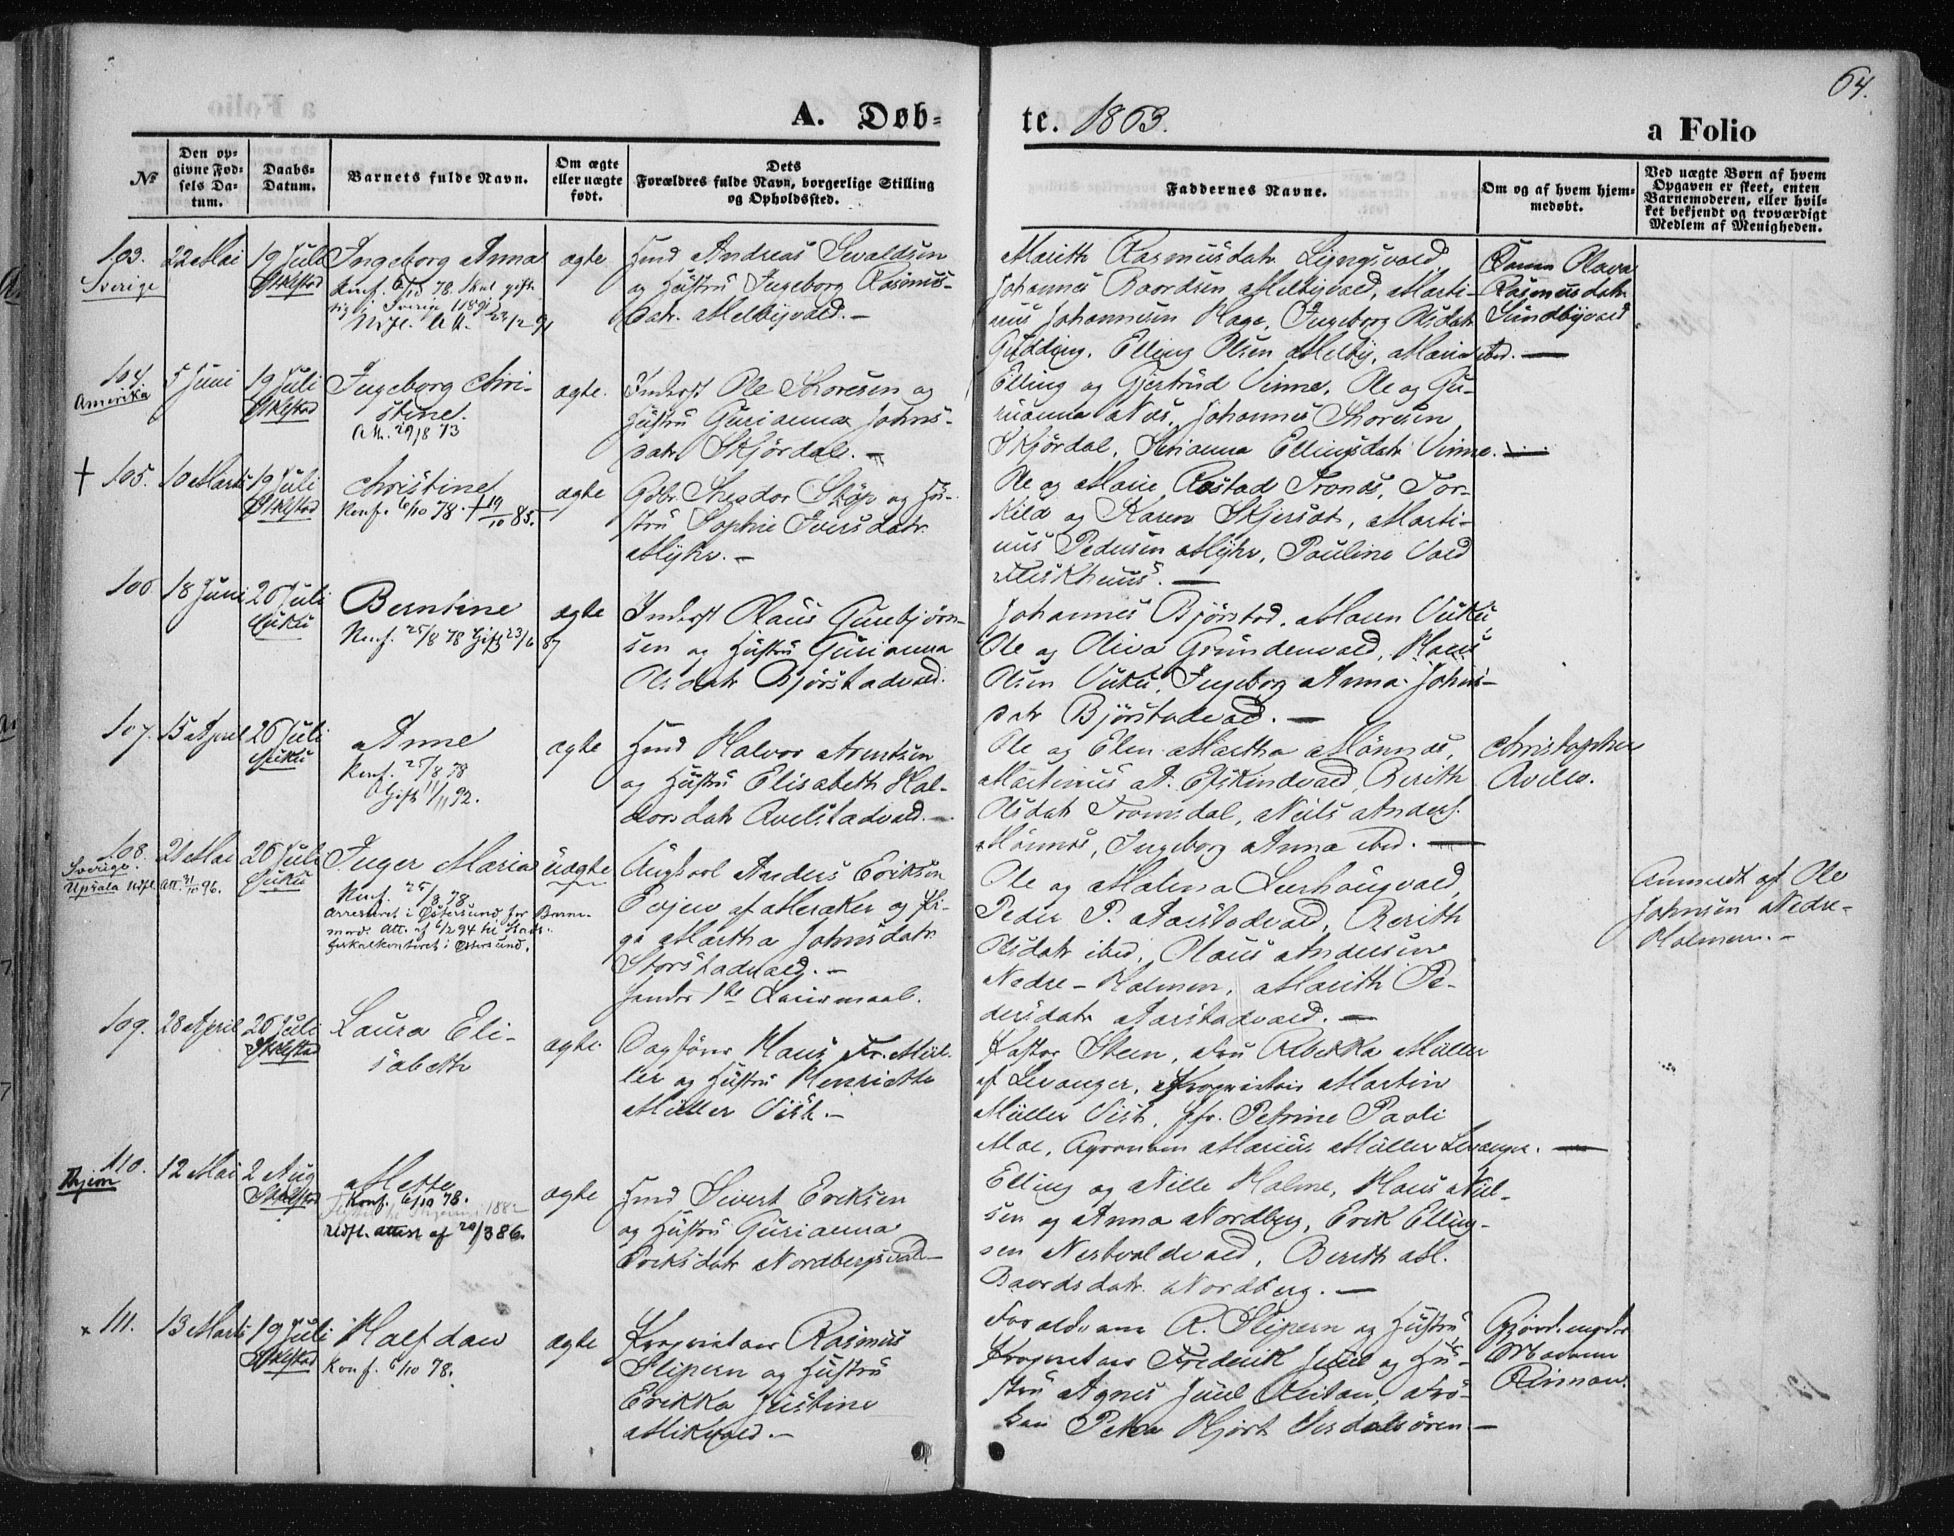 64.
A. Døb-
te. 1863.
a Folio
№
Den op-
givne Fød-
sels Da-
tum.
Daabs-
Datum.
Barnets fulde Navn.
Om ægte
eller uægte
født.
Dets
Forældres fulde Navn, borgerlige Stilling
og Opholdssted.
Faddernes Navne.
Om og af hvem hjem-
medøbt.
Ved uægte Børn af hvem
Opgaven er skeet, enten
Barnemoderen, eller hvil-
ket bekjendt og troværdigt
Medlem af Menigheden.
103.
Sverige
22 Mai
19 Juli
Stklestad
Ingeborg Anna
Konf. 6/10 78.
ægte
Huusmd Andreas Sevaldsen
og Hustru Ingeborg Rasmus-
datr. Melbyvald.-
Marith Rasmusdatr Lyngsvald
Johannes Baardsen Melbyvald, Marti-
nus Johannesen Hage, Ingeborg Olsdatr
Gudding, Elling Olsen Melby, Maria ibd.
Olava
Rasmusdatr
Sundbyvald
104.
Amerika
5 Juni
19 Juli
Stklestad
Ingeborg Chri-
stine.
Att. 29/8 73
ægte.
Inderst Ole Thoresen og
Hustru Gurianna Johns-
datr Skjørdal.-
Elling og Gjertrud Vinne, Ole og Gu-
rianna Næs, Johannes Thoresen
Skjørdal, Serianna Ellingsdatr Vinne.
† 105.
10 Marts
19 Juli
Stklestad
Christine
Konf. 6/10 78. † 19/10 85.
ægte
Gdbr. Theodor Skjør og Hu-
stru Sophie Iversdatr
Myhr.-
Ole og Marie Rostad Trones, Tor-
kild og Karen Skjersæt, Marti-
nus Pedersen Myhr, Pauline Vald
106
18 Juni
26 Juli
Vuku
Berntine
Konf. 25/8 78 Gift 23/6 87
ægte
Inderst Olaus Gunbjørn-
sen og Hustru Gurianna
Olsdatr Bjørstadvald.
Johannes Bjørstad, Maren Vuku,
Ole og Oliva Grundenvald, Hans
Olsen Vuku, Ingeborg Anna Johns-
datr Bjørstadvald.
107.
15 April
26 Juli
Vuku
Anne
Konf. 25/8 78
Gift 11/11 92.
ægte
Huusmd Halvor Arntsen
og Hustru Elisabeth Hal-
vorsdatr Ovelstadvald.
Ole og Elen Martha Mønnes,
Martinus A. Efskindvald, Berith
Olsdatr Tromsdal, Niels Anders.
Mønnes, Ingeborg Anna ibd.
Christopher
108.
Sverige.
Upsala Udfl. Att. 31/10 96.
21 Mai
26 Juli
Vuku
Inger Maria
Konf. 25/8 78
Arresteret i Østersund for Barne-
mord. Att. af 6/2 94 til Stads-
fiskalkontoret i Østersund.
uægte
Ungkarl Anders Eriksen
Evjen af Meraker og Pi-
ge Martha Johnsdatr
Storstadvald.-
Hendes 1ste Leiermaal.
Ole og Malena Lerhaugvald,
Peder P. Aarstadvald, Berith
Olsdatr ibd, Olaus Andersen
Nedre-Holmen, Marith Pe-
dersdatr Aarstadvald.
Anmeldt af Ole
Johnsen Nedre-
Holmen.-
109.
28 April
26 Juli
Stklestad
Laura Eli-
sabeth
ægte.
Sagfører Hans Fr. Mül-
ler og Hustru Henriette
Müller Vist.-
Pastor Steen, Fru Rebekka Müller
af Levanger, Proprietær Martin
Müller Vist, Jfr. Petrine Pavli
Moe, Agronom Marius Müller Levanger.
110.
Thjem
12 Mai
2 Aug
Stklestad
Mette
Konf. 6/10 78.
Udfl. attest af 20/3 86.
ægte
Huusmd Sivert Eriksen
og Hustru Gurianna
Eriksdatr Nordbergsvald
Elling og Nille Holme, Hans Niel-
sen og Anna Nordberg, Erik Elling-
sen Nestvoldvald, Berith Ml.
Baardsdatr Nordberg.
x 111.
13 Marts
19 Juli
Stklestad
Halfdan
Konf. 6/10 78.
ægte
Proprietær Rasmus
Slipern og Hustru
Erikka Justine
Mikvold.-
Foraldrene R. Slipern og Hustru
Proprietær Frederik Juul og Hu-
stru Agnes Juul Reitan, Frø-
ken Petra Hjort Verdalsøren
Madam